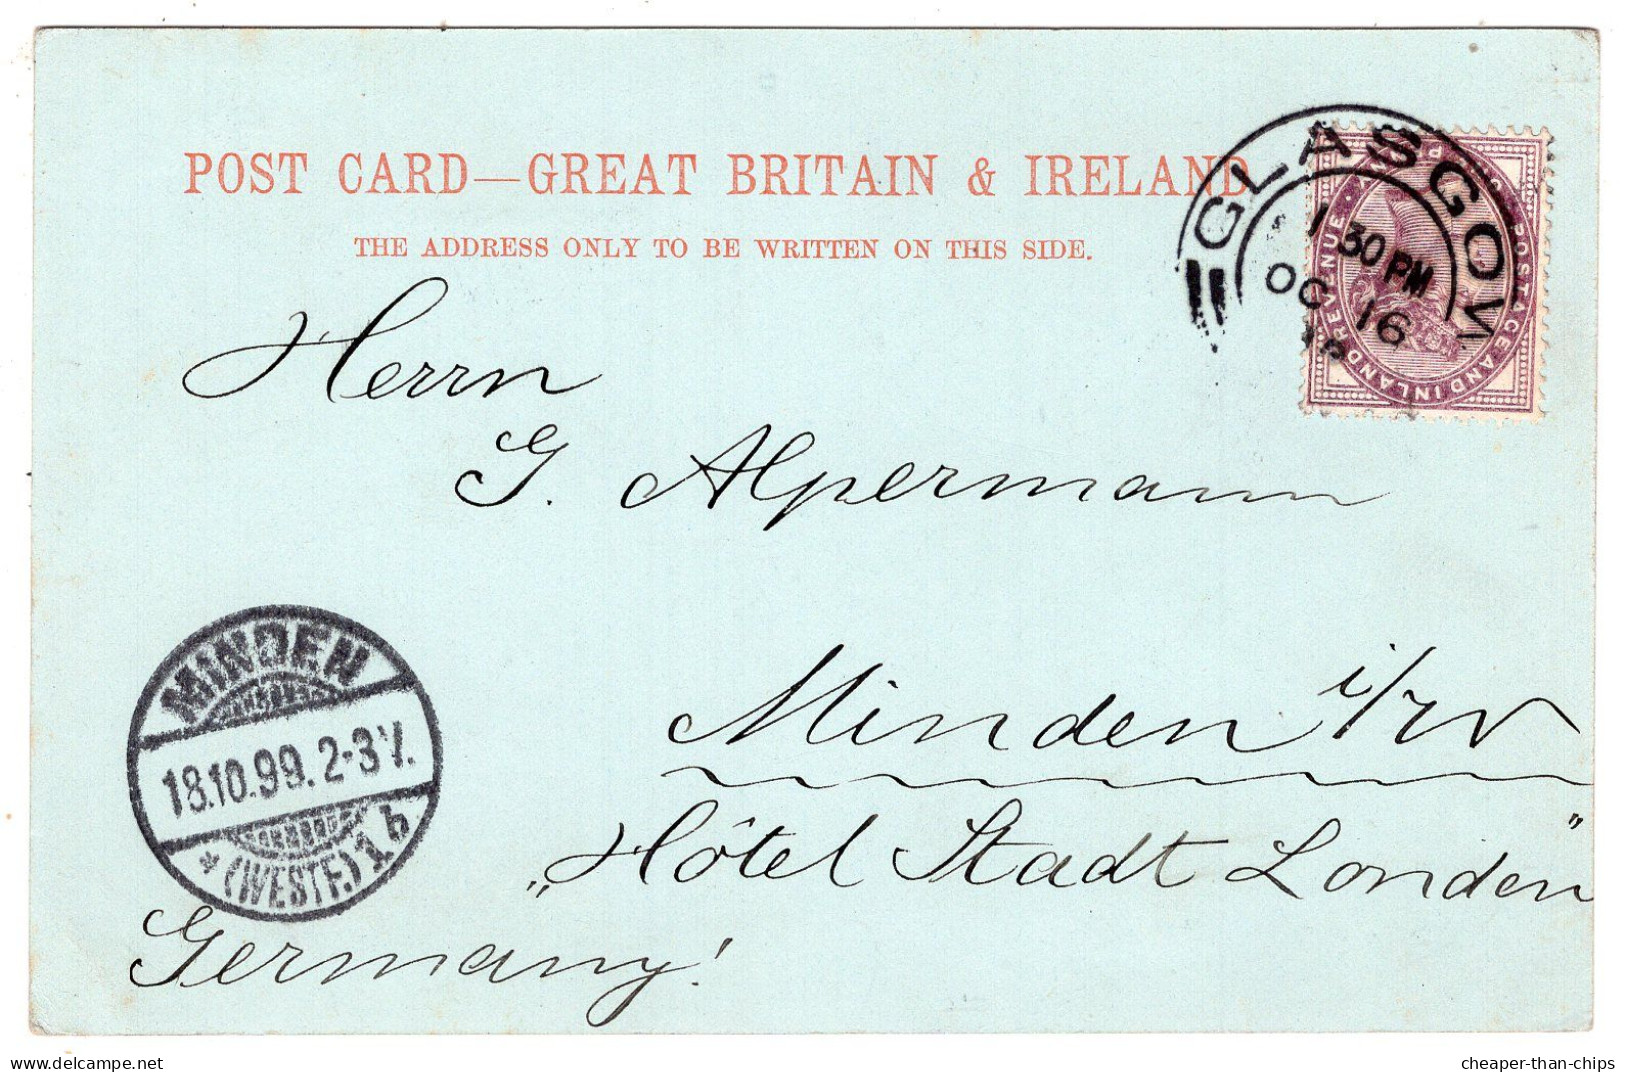 POST CARD—GREAT BRITAIN & IRELAND
THE ADDRESS ONLY TO BE WRITTEN ON THIS SIDE.
GLASGOW
1 30 PM
OC 16
POSTAGE AND INLAND REVENUE
Herrn
G. Alpermann
Minden i/W
„Hôtel Stadt London"
Germany!
MINDEN
18.10.99. 2-3 V.
* (WESTF.) 1 b
www.delcampe.net
cheaper-than-chips